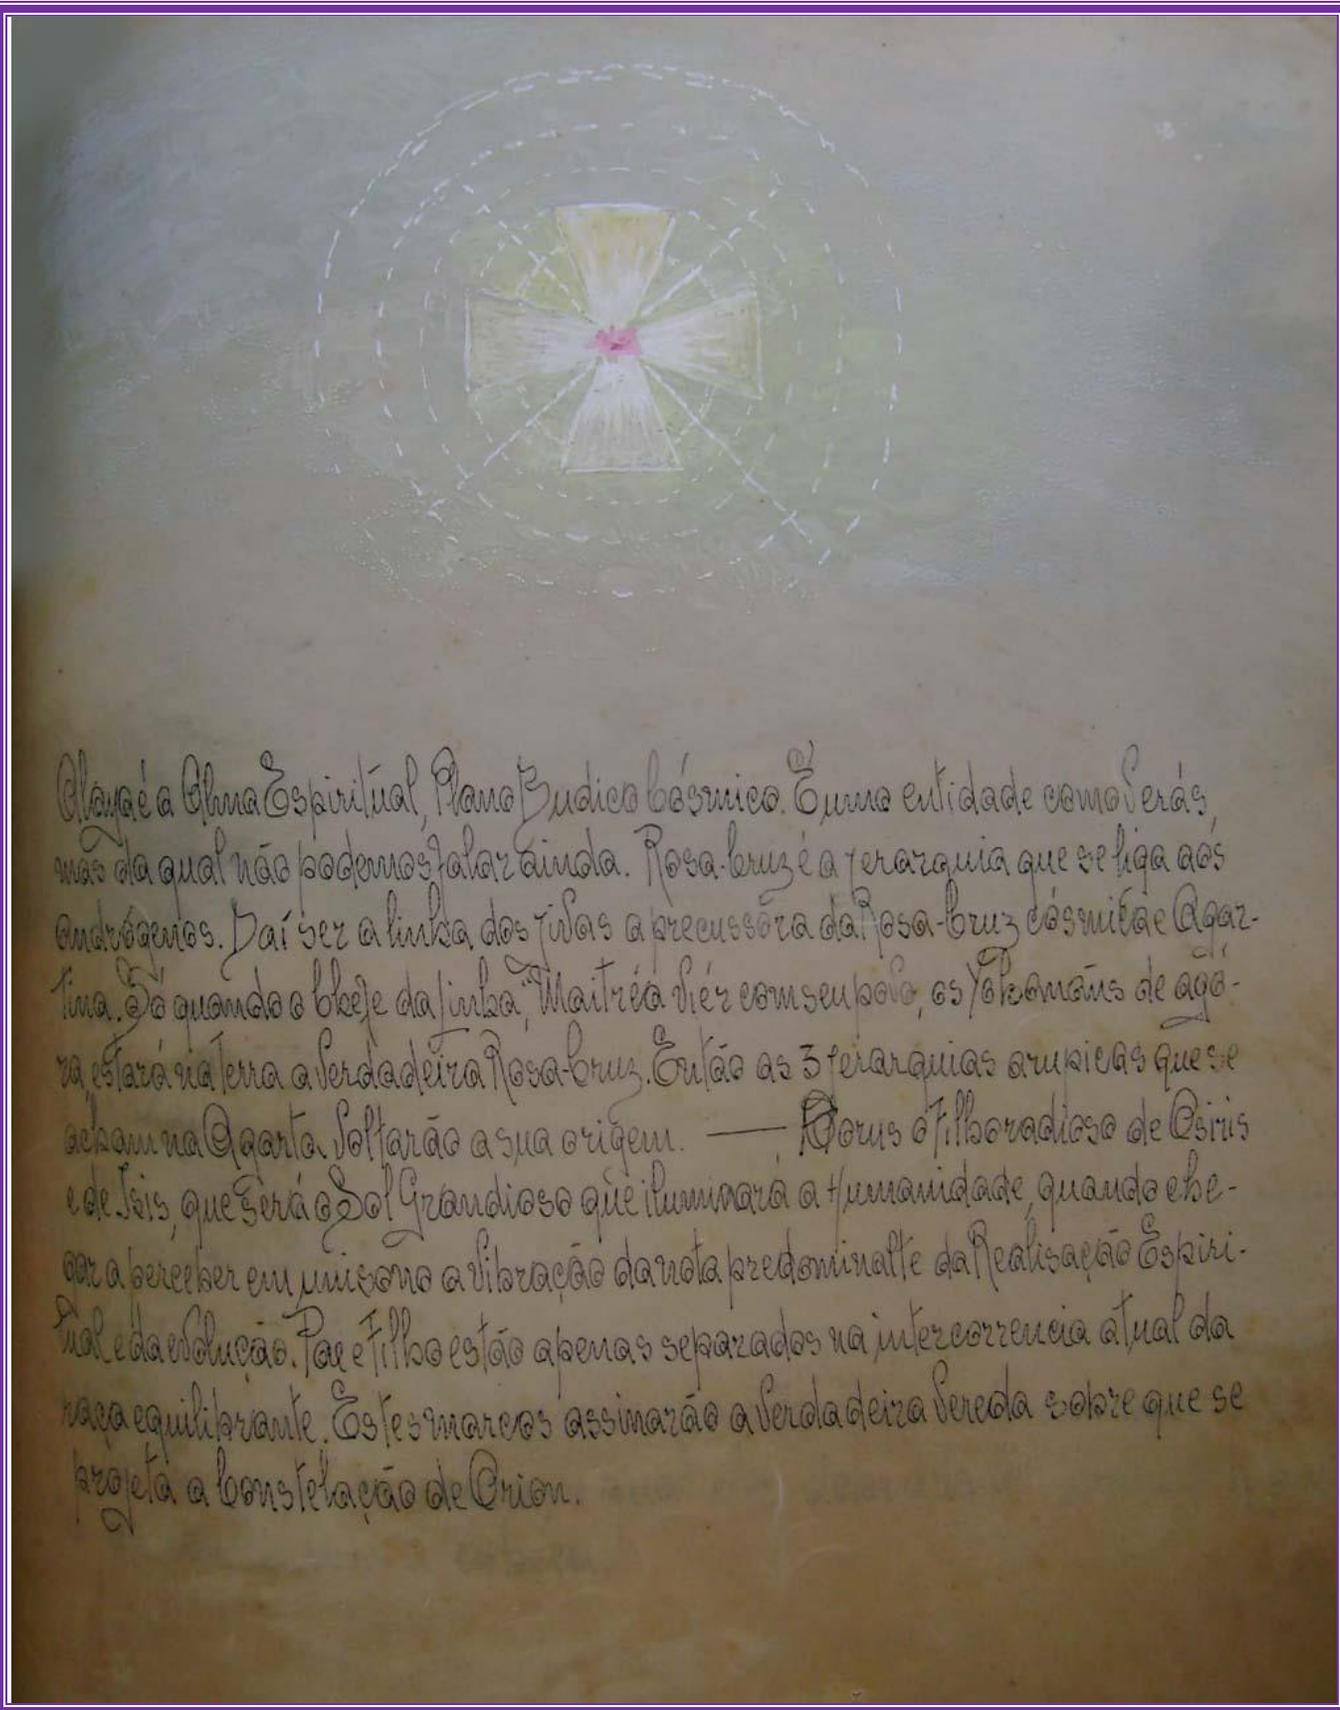 Alaya é a Alma Espiritual, Plano Budico Cósmico. É uma entidade como Verás,
mas da qual não podemos falar ainda. Rosa-Cruz é a Jerarquia que se liga aos
andrógenos. Daí ser a linha dos Jivas a precussôra da Rosa-Cruz cósmica e Agar-
tina. Só quando o Chefe da linha, Maitréa viér com seu povo, os de agó-
ra, estará na Terra a Verdadeira Rosa-Cruz. Então as 3 Jerarquias arupicas que se
acham na Agarta Voltarão a sua origem. — Horus o Filho radioso de Osiris
e de Isis, que será o Sol Grandioso que iluminará a Humanidade, quando che-
gar a perceber em unisono a Vibração da nota predominante da Realisação Espiri-
tual e da evolução. Pae e Filho estão apenas separados na intercorrencia atual da
raça equilibrante. Estes marcos assinarão a Verdadeira Vereda sobre que se
projeta a Constelação de Orion.